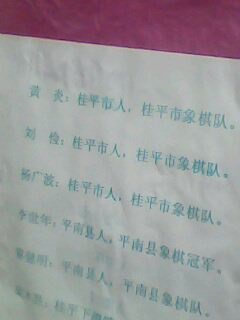 黄 炎：桂平市人，桂平市象棋队。
刘 俭：桂平市人，桂平市象棋队。
杨广波：桂平市人，桂平市象棋队。
李世年：平南县人，平南县象棋冠军。
健明：平南县人，平南县象棋队。
桂平下